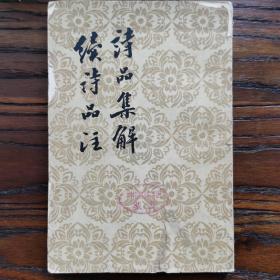 詩品集解
續詩品注